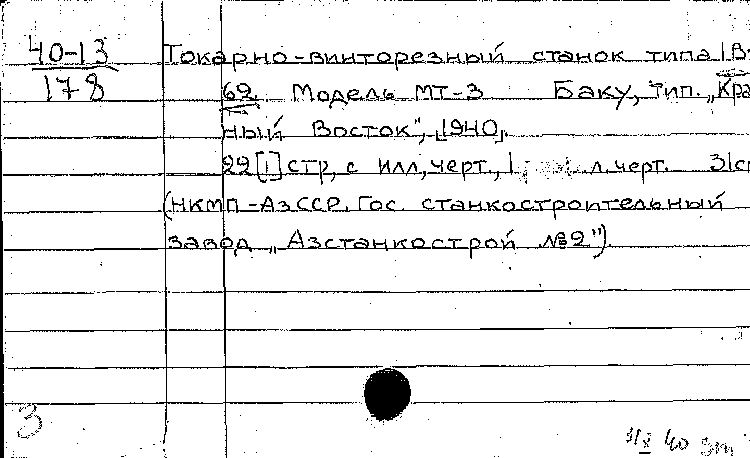 40-13
178
Токарно-винторезный станок типа 1В-
62. Модель МТ-3 Баку, тип. „Кра
ный Восток", 1940.
22 [1] стр, с илл, черт., 1 л. черт. 31с
(НКМП-АзССР. Гос. станкостроительный
завод „Азстанкострой №2").
3
40